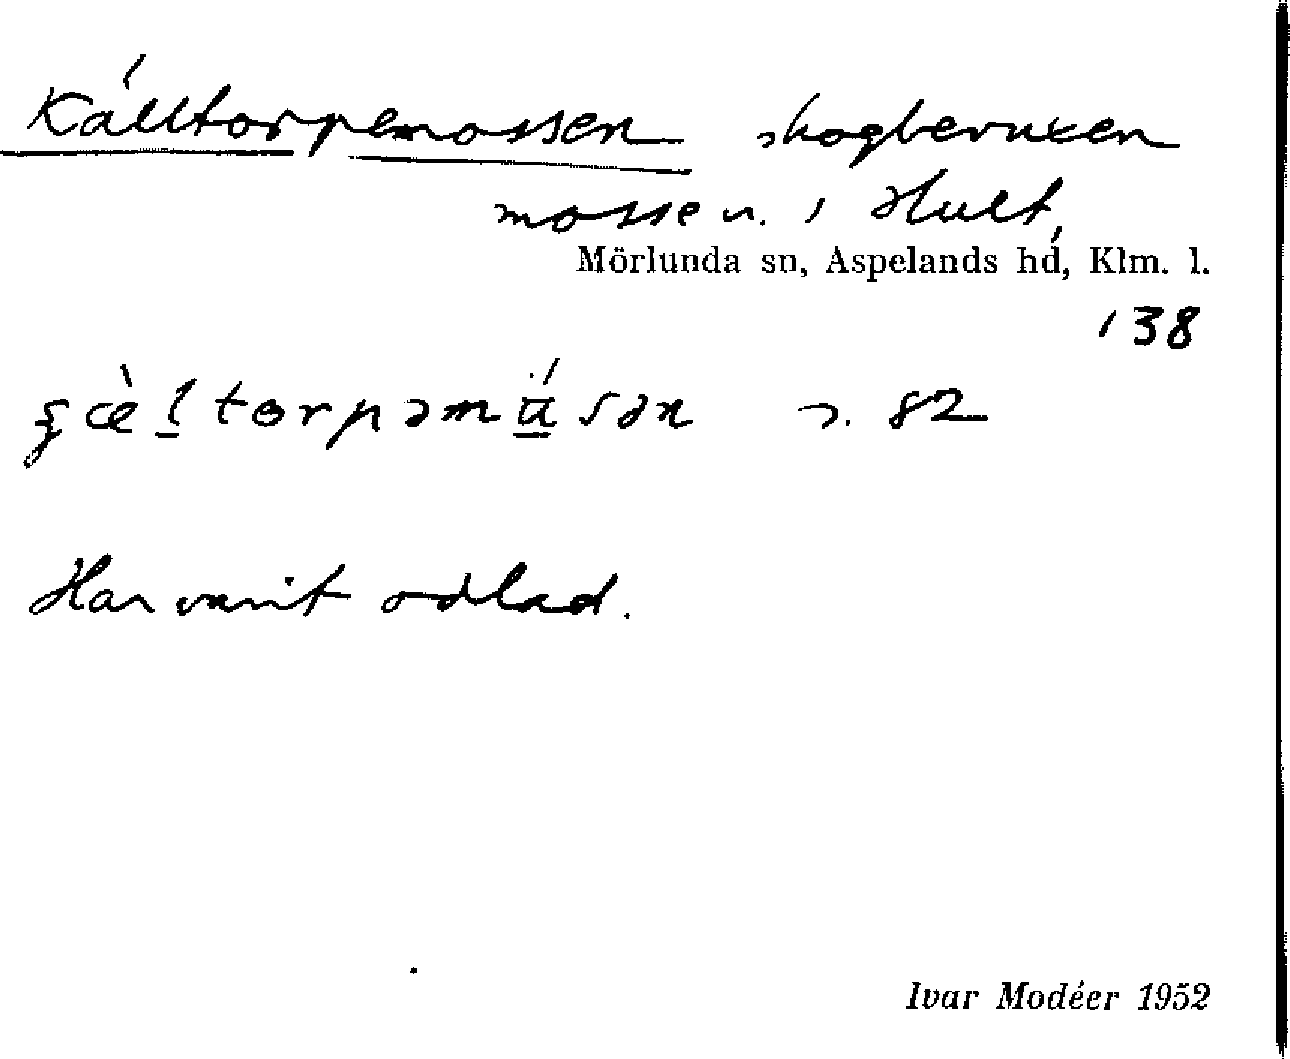 Källtorpemossen skogbevuxen
mosse n. i Hult,
Mörlunda sn, Aspelands hd, Klm. l.
138
s. 82
Har varit odlad.
Ivar Modéer 1952